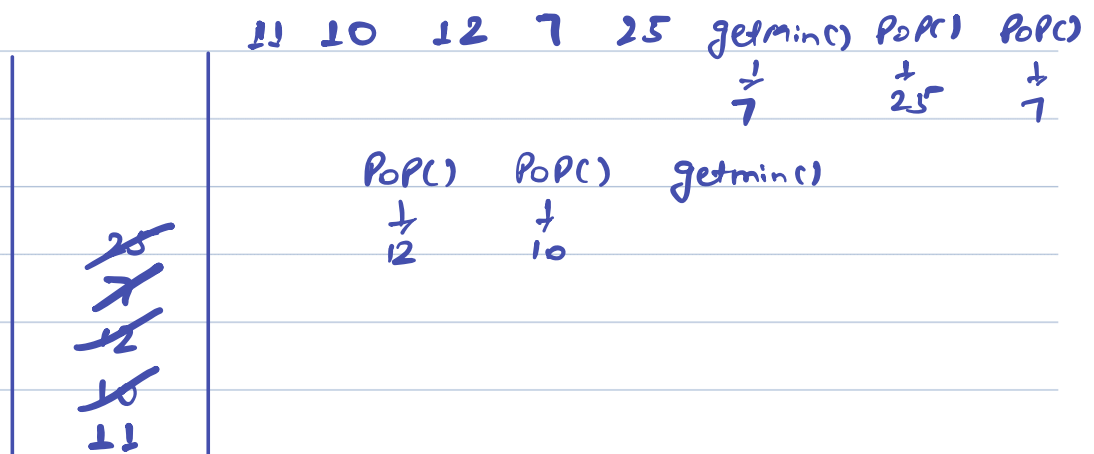 11 10 12 7 25 getmin() POP() POP()
↓ ↓ ↓
7 25 7
POP() POP() getmin()
↓ ↓
12 10
25
7
12
10
11